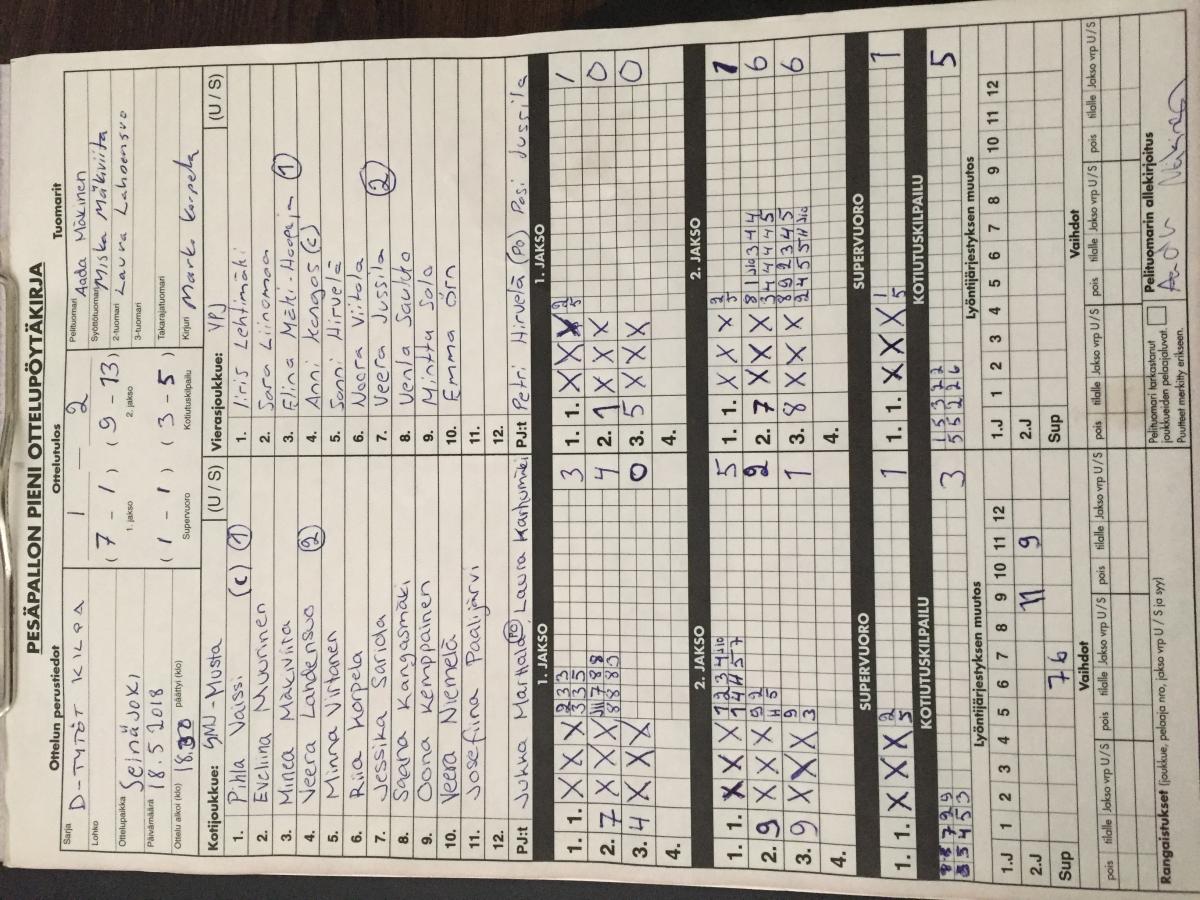 PESÄPALLON PIENI OTTELUPÖYTÄKIRJA
Ottelun perustiedot
Ottelutulos
Tuomarit
Sarja D-TYTÖT KILPA
Lohko
Ottelupaikka SEINÄJOKI
Päivämäärä 18.5 2018
Ottelu alkoi (klo) 18.30 päättyi (klo)
1 — 2
(7 - 1) (9 - 13)
1. jakso 2. jakso
(1 - 1) (3 - 5)
Supervuoro Kotiutuskilpailu
Pelituomari Aada Mäkinen
Syöttötuomari Miska Mäkiviita
2-tuomari Laura Lahdensuo
3-tuomari
Takarajatuomari
Kirjuri Marko Korpela
Kotijoukkue: SMJ-Musta (U / S)
1. Pihla Vaissi (c) 1
2. Eveliina Muurinen
3. Minea Mäkiviita
4. Veera Lahdensuo 2
5. Minna Virtanen
6. Riia Korpela
7. Jessika Sarida
8. Saana Kangasmäki
9. Oona Kemppainen
10. Veera Niemelä
11. Josefiina Paalijärvi
12.
PJ:t Jukka Marttala (PO), Laura Karhumäki
Vierasjoukkue: YPJ (U / S)
1. Iiris Lehtimäki
2. Sara Liinamaa
3. Elina Mäki-Haapoja 1
4. Anni Kangas (c)
5. Sanni Hirvelä
6. Noora Viitala
7. Veera Jussila 2
8. Venla Sauluto
9. Minttu Salo
10. Emma Örn
11.
12.
PJ:t Petri Hirvelä (PO) Pasi Jussila
1. JAKSO
1. 1. X X X 3
2. 7 X X X 4
3. 4 X X X 0
4.
1. JAKSO
1. 1. X X X 1
2. 1 X X X 0
3. 5 X X X 0
4.
2. JAKSO
1. 1. X X X 5
2. 9 X X X 2
3. 9 X X X 1
4.
2. JAKSO
1. 1. X X X 1
2. 7 X X X 6
3. 8 X X X 6
4.
SUPERVUORO
1. 1. X X X 2 5 1
SUPERVUORO
1. 1. X X X 1 5 1
KOTIUTUSKILPAILU
3
KOTIUTUSKILPAILU
1 5 3 2 2
5 5 2 2 6
5
Lyöntijärjestyksen muutos
1.J 1 2 3 4 5 6 7 8 9 10 11 12
2.J 11 9
Sup 7 6
Lyöntijärjestyksen muutos
1.J 1 2 3 4 5 6 7 8 9 10 11 12
2.J
Sup
Vaihdot
pois tilalle Jakso vrp U / S pois tilalle Jakso vrp U / S pois tilalle Jakso vrp U / S
Vaihdot
pois tilalle Jakso vrp U / S pois tilalle Jakso vrp U / S pois tilalle Jakso vrp U / S
Rangaistukset (joukkue, pelaaja nro, jakso vrp U / S ja syy)
Pelituomari tarkastanut
joukkueiden pelaajaluvat.
Puutteet merkitty erikseen.
Pelituomarin allekirjoitus
Aada Mäkinen